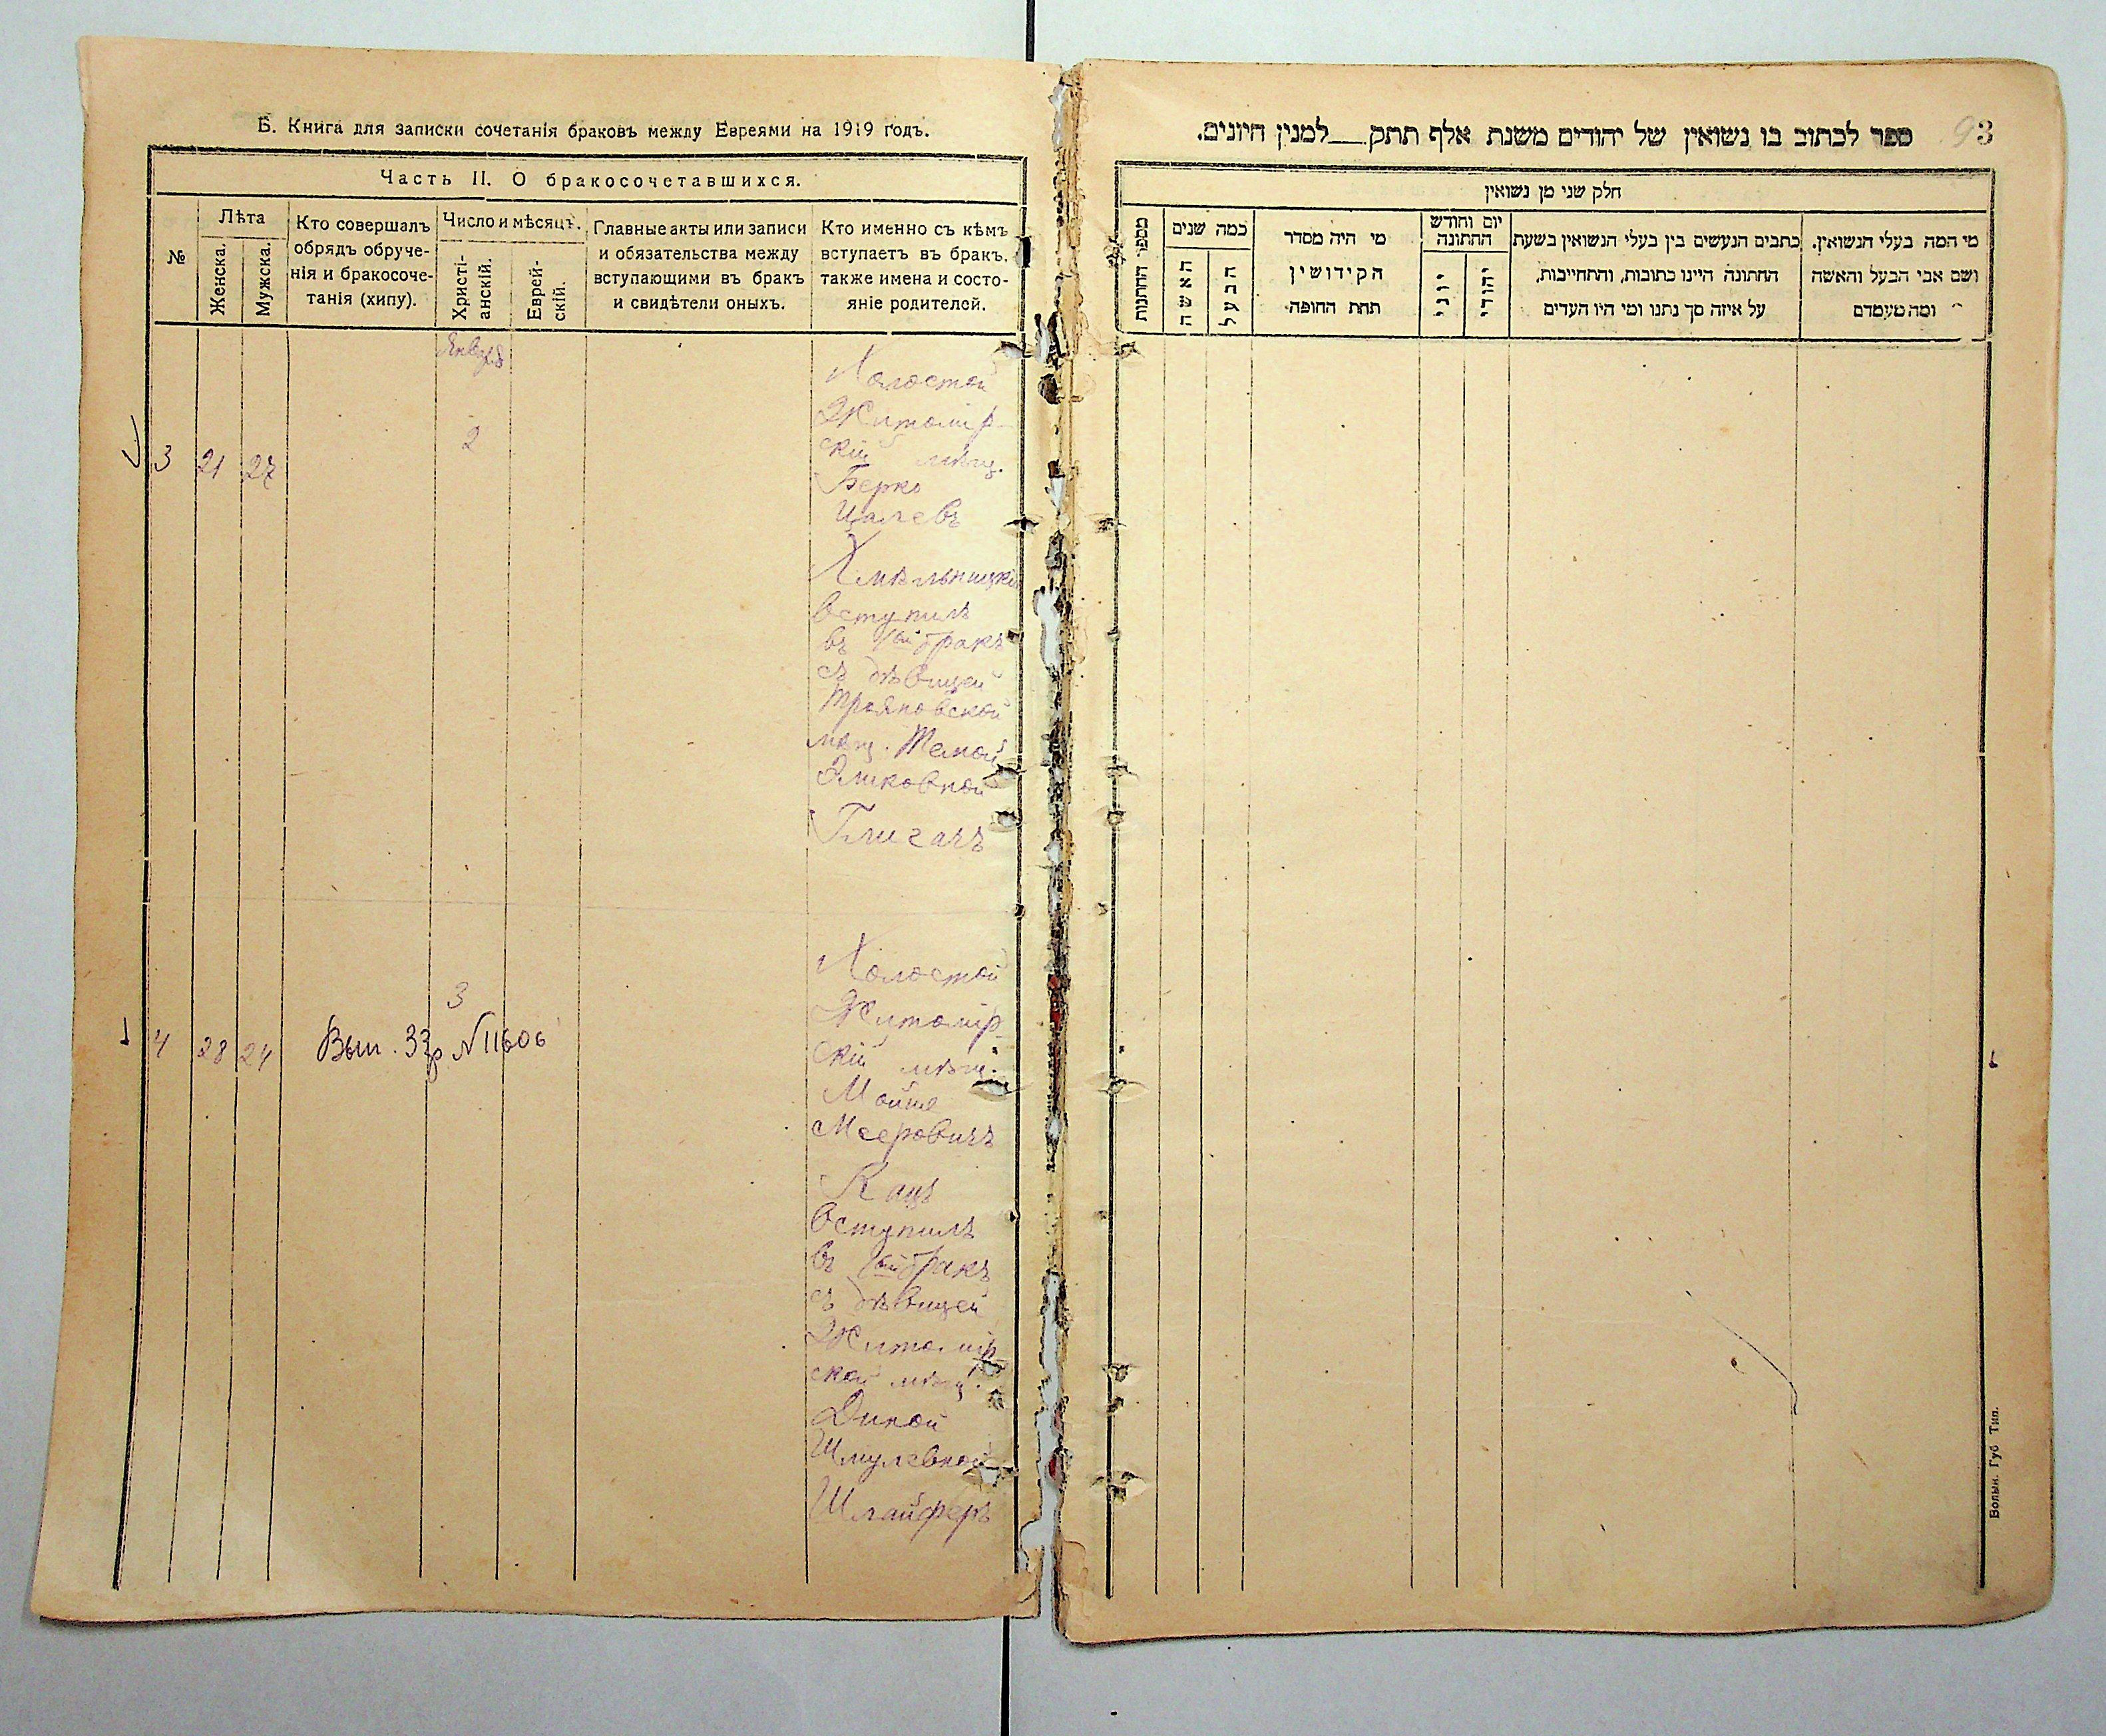 Б. Книга для записки сочетанія браковъ между Евреями на 1919 годъ.
Часть II. О бракосочетавшихся.
№
Лѣта
Женска.
Мужска.
Кто совершалъ
обрядъ обруче-
нія и бракосоче-
танія (хипу).
Число и мѣсяцъ.
Христі-
анскій.
Еврей-
скій.
Главные акты или записи
и обязательства между
вступающими въ бракъ
и свидѣтели оныхъ.
Кто именно съ кѣмъ
вступаетъ въ бракъ,
также имена и состо-
яніе родителей.
Январь
3 21 27 2
Холостой
Житомір-
скій мѣщ.
Берко
Цалевъ
Хмѣльницкій
вступилъ
въ 1ый бракъ
съ дѣвицей
Трояновской
мѣщ. Темой
Эликовной
4 28 24 3
Вып. 33 р N 11606
Холостой
Житомір-
скій мѣщ.
Мойше
Мееровичъ
Кацъ
вступилъ
въ 1ый бракъ
съ дѣвицей
Житомір
ской мѣщ.
Диной
Шмулевной
Шлайферъ
93
ספר לכתוב בו נשואין של יהודים משנת אלף תתק__למנין היונים.
חלק שני מן נשואין
מספר החתנות
כמה שנים
האשה
הבעל
מי היה מסדר
הקידושין
תחת החופה
יום וחודש
החתונה
יוני
יהודי
כתבים הנעשים בין בעלי הנשואין בשעת
החתונה היינו כתובות, והתחייבות,
על איזה סך נתנו ומי היו העדים
מי המה בעלי הנשואין.
ושם אבי הבעל והאשה
ומה מעמדם
Волын. Губ Тип.